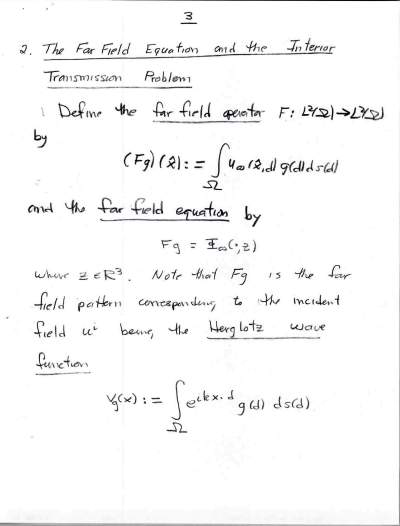 3
2. The Far Field Equation and the Interior
Transmission Problem
Define the far field operator F: L²(Ω)→L²(Ω)
by
(Fg)(x̂) := ∫_Ω u∞(x̂,d) g(d) ds(d)
and the far field equation by
Fg = Φ∞(·,z)
where z ∈ R³. Note that Fg is the far
field pattern corresponding to the incident
field uⁱ being the Herglotz wave
function
v_g(x) := ∫_Ω e^{ikx·d} g(d) ds(d)